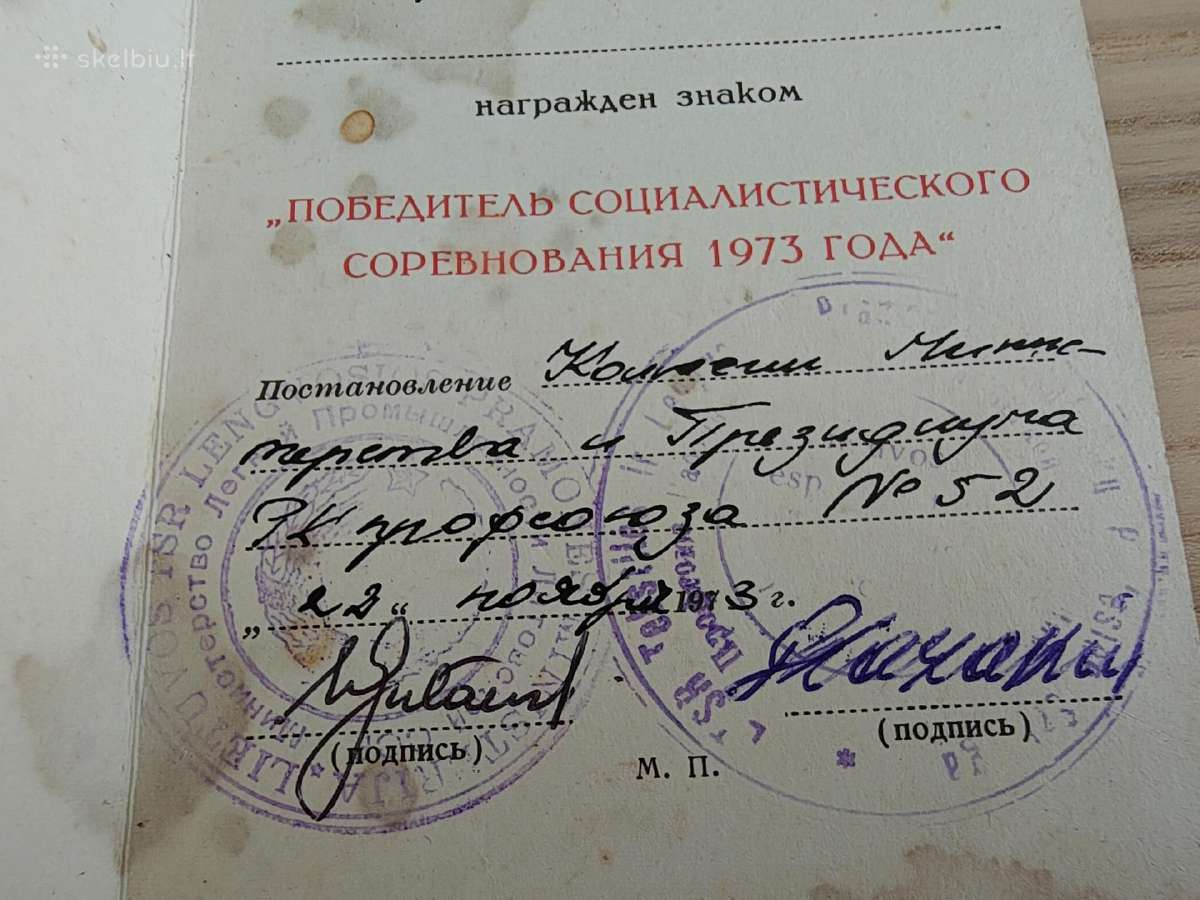 skelbiu.lt
награжден знаком
„ПОБЕДИТЕЛЬ СОЦИАЛИСТИЧЕСКОГО
СОРЕВНОВАНИЯ 1973 ГОДА“
Постановление Коллегии Минис-
терства и Президиума
РК профсоюза № 52
„22“ ноября 1973 г.
(подпись)
(подпись)
М. П.
LIETUVOS TSR LENGVOSIOS PRAMONĖS MINISTERIJA
Министерство Легкой Промышленности Литовской ССР